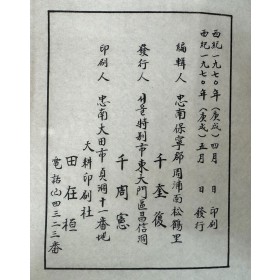 西紀一九七〇年(庚戌)四月 日 印刷
西紀一九七〇年(庚戌)五月 日 發行
編輯人 忠南保寧郡周浦面松鶴里
千奎復
發行人 서울特別市東大門區昌信洞
千周憲
印刷人 忠南大田市貞洞十一番地
大耕印刷社
田在桓
電話(2)四三二三番